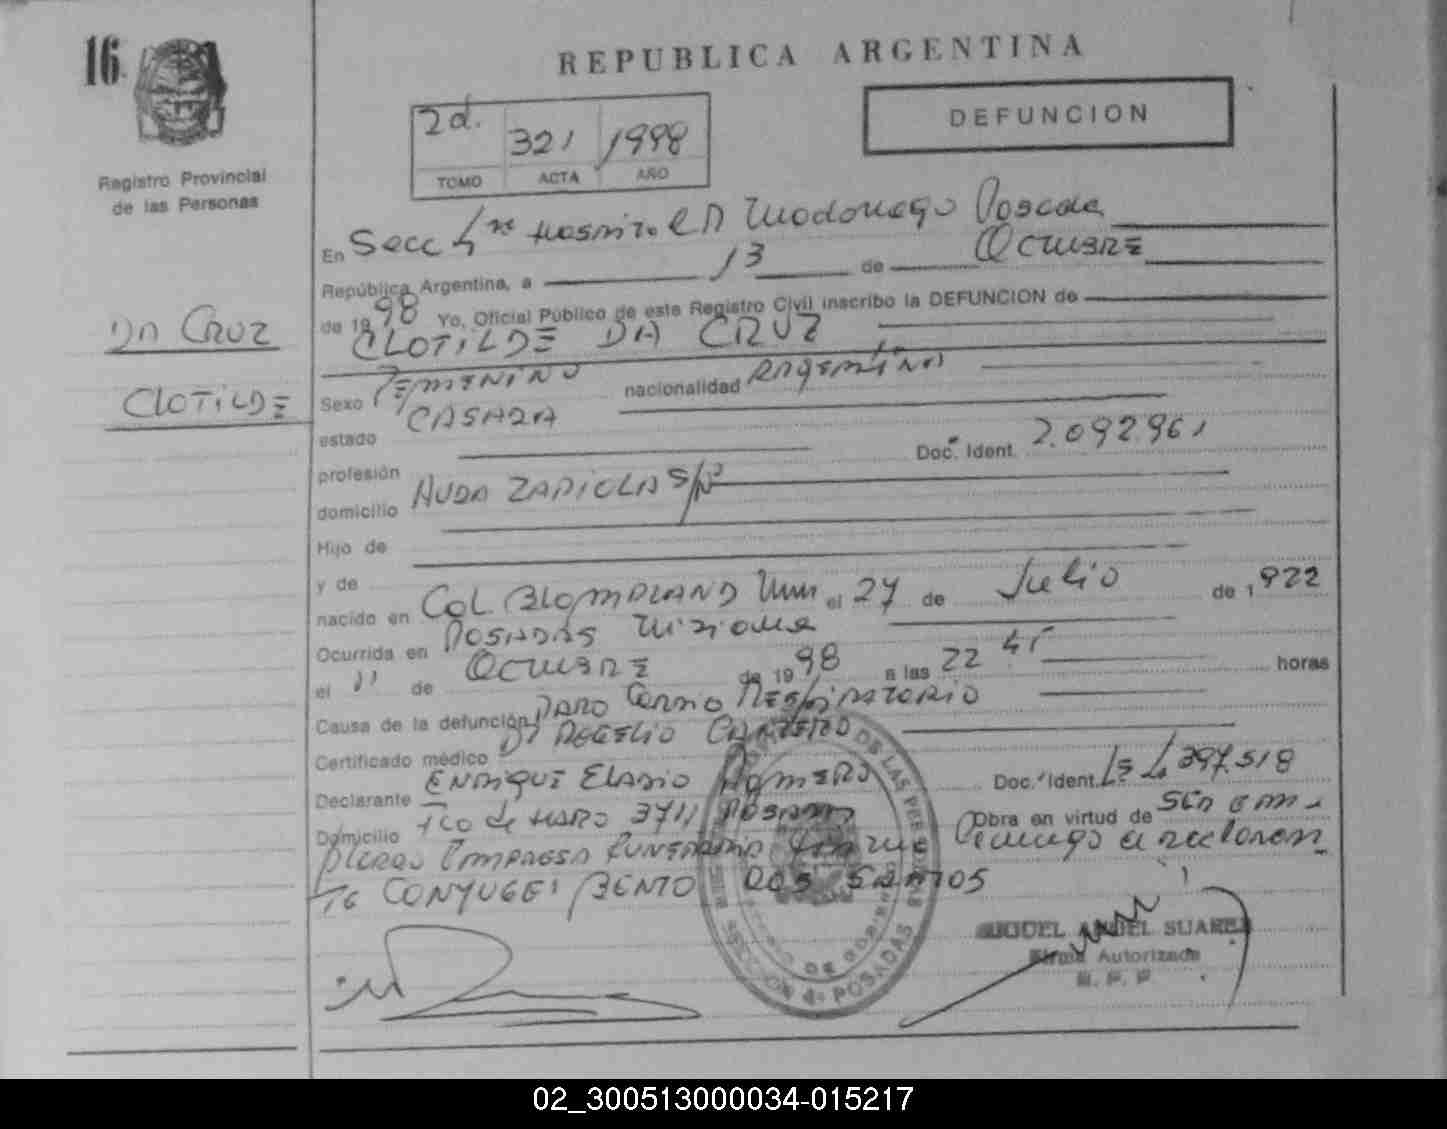 16
REPUBLICA ARGENTINA
Registro Provincial
de las Personas
2d. 321 1998
TOMO ACTA AÑO
DEFUNCION
DA CRUZ
CLOTILDE
En Secc 4ta Posadas
República Argentina, a 13 de Octubre
de 1998 Yo, Oficial Público de este Registro Civil inscribo la DEFUNCION de
CLOTILDE DA CRUZ
Sexo Femenino nacionalidad Argentina
estado CASADA
profesión Doc. Ident. 2.092.961
domicilio AVDA ZAPIOLA S/Nº
Hijo de
y de
nacido en COL el 27 de Julio de 1922
Ocurrida en POSADAS Misiones
el 11 de Octubre de 1998 a las 22 45 horas
Causa de la defunción PARO Cardio RESPIRATORIO
Certificado médico Dr ROGELIO
Declarante ENRIQUE ELADIO ROMERO Doc. Ident. 397.518
Domicilio Fco de HARO 3711 POSADAS Obra en virtud de
EMPRESA FUNERARIA
CONYUGE: BENTO DOS SANTOS
MIGUEL ANGEL SUAREZ
Firma Autorizada
R. P. P.
DE LAS PERSONAS
SECCION 4ª POSADAS
02_300513000034-015217